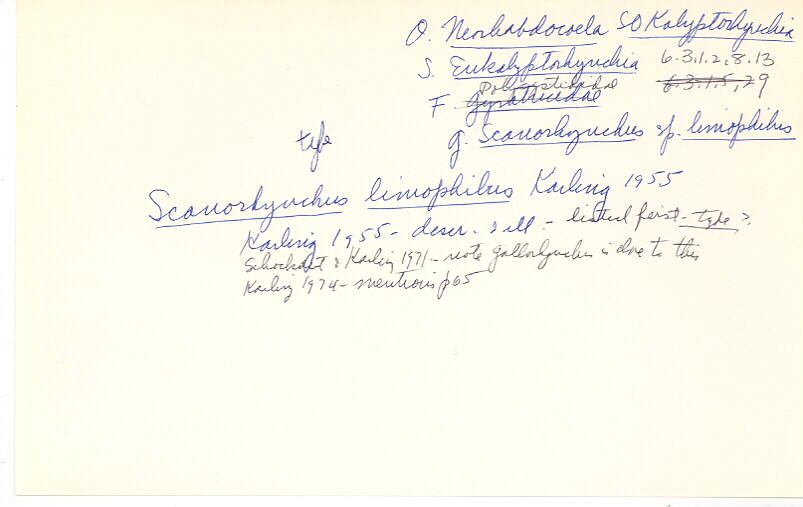 O. Neorhabdocoela SO Kalyptorhynchia
S. Eukalyptorhynchia 6.3.1.2,8.13
Polycystididae 6.3.1.5,29
F. Gyratricidae
type g. Scanorhynchus sp. limophilus
Scanorhynchus limophilus Karling 1955
Karling 1955 - descr. & ill - listed first - type?
Schockaert & Karling 1971 - note Gallorhynchus is close to this
Karling 1974 - mentions p65